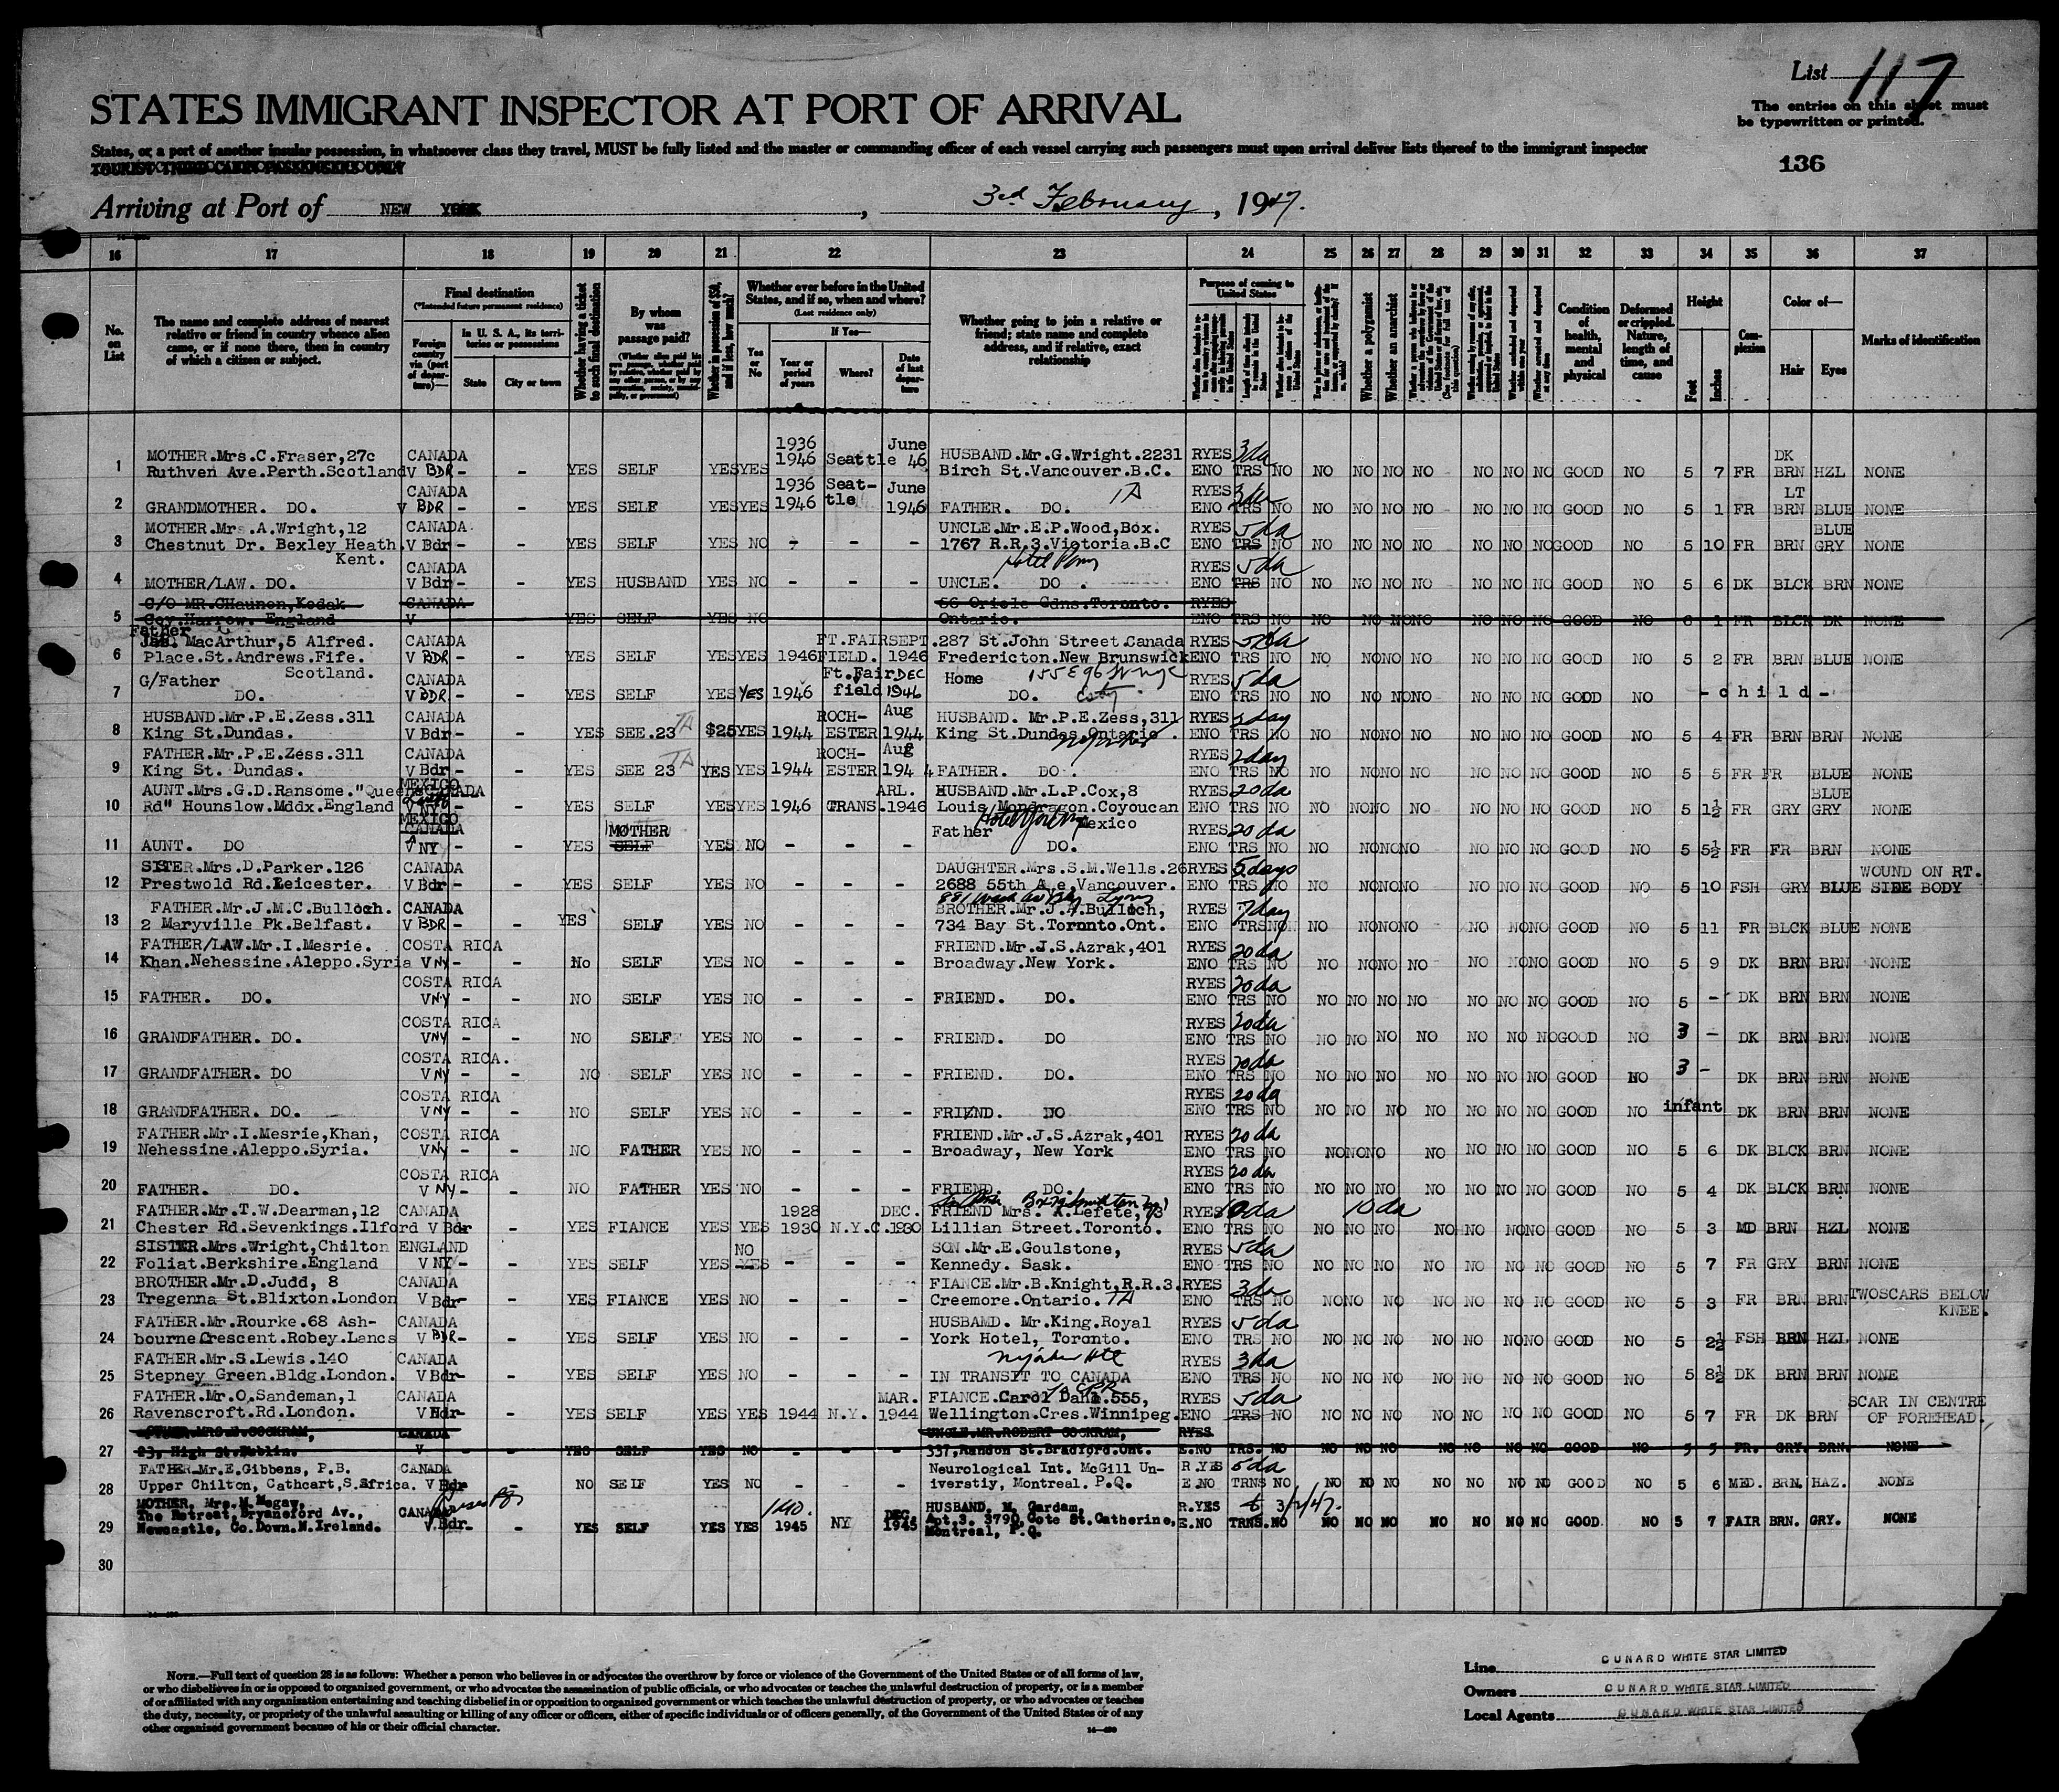 List 117
The entries on this sheet must
be typewritten or printed.
STATES IMMIGRANT INSPECTOR AT PORT OF ARRIVAL
States, or a port of another insular possession, in whatsoever class they travel, MUST be fully listed and the master or commanding officer of each vessel carrying such passengers must upon arrival deliver lists thereof to the immigrant inspector
TOURIST THIRD CABIN PASSENGERS ONLY
136
Arriving at Port of NEW YORK, 3rd February, 1947.
16 17 18 19 20 21 22 23 24 25 26 27 28 29 30 31 32 33 34 35 36 37
No. on List
The name and complete address of nearest relative or friend in country whence alien came, or if none there, then in country of which a citizen or subject.
Final destination
(*Intended future permanent residence)
Foreign country via (port of departure)—
In U. S. A., its territories or possessions
State
City or town
Whether having a ticket to such final destination
By whom was passage paid?
Whether in possession of $50, and if less, how much?
Whether ever before in the United States, and if so, when and where?
(Last residence only)
Yes or No
If Yes—
Year or period of years
Where?
Date of last departure
Whether going to join a relative or friend; state name and complete address, and if relative, exact relationship
Purpose of coming to United States
Whether a polygamist
Whether an anarchist
Condition of health, mental and physical
Deformed or crippled. Nature, length of time, and cause
Height
Feet
Inches
Complexion
Color of—
Hair
Eyes
Marks of identification
1936 June DK
MOTHER.Mrs.C.Fraser,27c CANADA 1946 Seattle 46 HUSBAND.Mr.G.Wright.2231 RYES 3da
1 Ruthven Ave.Perth.Scotland V BDR - - YES SELF YES YES Birch St.Vancouver.B.C. ENO TRS NO NO NO NO NO NO NO NO GOOD NO 5 7 FR BRN HZL NONE
CANADA 1936 Seat- June RYES 3da LT
2 GRANDMOTHER. DO. V BDR - - YES SELF YES YES 1946 tle 1946 FATHER. DO. ENO TRS NO NO NO NO NO NO NO NO GOOD NO 5 1 FR BRN BLUE NONE
MOTHER.Mrs.A.Wright,12 CANADA UNCLE.Mr.E.P.Wood,Box. RYES 5da BLUE
3 Chestnut Dr. Bexley Heath. V Bdr - - YES SELF YES NO - - - 1767 R.R.3.Victoria.B.C ENO TRS NO NO NO NO NO NO NO NO GOOD NO 5 10 FR BRN GRY NONE
Kent. CANADA RYES 5da
4 MOTHER/LAW. DO. V Bdr - - YES HUSBAND YES NO - - - UNCLE. DO. ENO TRS NO NO NO NO NO NO NO NO GOOD NO 5 6 DK BLCK BRN NONE
C/O MR.CHaunon,Kodak CANADA 66 Oriole Gdns.Toronto. RYES
5 Coy.Harrow. England V YES SELF YES NO Ontario. ENO TRS NO NO NO NO NO NO NO NO GOOD NO 6 1 FR BLCK DK NONE
Father
Jas. MacArthur,5 Alfred. CANADA FT.FAIR SEPT. 287 St.John Street.Canada RYES 5da
6 Place.St.Andrews.Fife. V BDR - - YES SELF YES YES 1946 FIELD. 1946 Fredericton.New Brunswick ENO TRS NO NO NO NO NO NO NO NO GOOD NO 5 2 FR BRN BLUE NONE
Scotland.
G/Father CANADA Ft.Fair DEC Home 155 E 96 RYES 5da
7 DO. V BDR - - YES SELF YES YES 1946 field 1946 DO. ENO TRS NO NO NO NO NO NO NO NO GOOD NO - child -
HUSBAND.Mr.P.E.Zess.311 CANADA ROCH- Aug HUSBAND. Mr.P.E.Zess,311 RYES 2day
8 King St.Dundas. V Bdr - - YES SEE.23 $25 YES 1944 ESTER 1944 King St.Dundas.Ontario. ENO TRS NO NO NO NO NO NO NO NO GOOD NO 5 4 FR BRN BRN NONE
FATHER.Mr.P.E.Zess.311 CANADA ROCH- Aug RYES 2day
9 King St. Dundas. V Bdr - - YES SEE 23 YES YES 1944 ESTER 1944 FATHER. DO. ENO TRS NO NO NO NO NO NO NO NO GOOD NO 5 5 FR FR BLUE NONE
AUNT.Mrs.G.D.Ransome."Queens MEXICO CANADA ARL. HUSBAND.Mr.L.P.Cox,8 RYES 20da BLUE
10 Rd" Hounslow.Mddx.England V NY - - YES SELF YES YES 1946 TRANS. 1946 Louis Mondragon.Coyoucan ENO TRS NO NO NO NO NO NO NO NO GOOD NO 5 1½ FR GRY GRY NONE
Mexico
MEXICO CANADA MOTHER Father RYES 20da
11 AUNT. DO V NY - - YES SELF YES NO - - - DO. ENO TRS NO NO NO NO NO NO NO NO GOOD NO 5 5½ FR FR BRN NONE
SISTER.Mrs.D.Parker.126 CANADA DAUGHTER.Mrs.S.M.Wells.26 RYES 5days WOUND ON RT.
12 Prestwold Rd.Leicester. V Bdr - - YES SELF YES NO - - - 2688 55th Ave,Vancouver. ENO TRS NO NO NO NO NO NO NO NO GOOD NO 5 10 FSH GRY BLUE SIDE BODY
FATHER.Mr.J.M.C.Bulloch. CANADA BROTHER.Mr.J.A.Bulloch, RYES 7day
13 2 Maryville Pk.Belfast. V BDR - - YES SELF YES NO - - - 734 Bay St.Toronto.Ont. ENO TRS NO NO NO NO NO NO NO NO GOOD NO 5 11 FR BLCK BLUE NONE
FATHER/LAW.Mr.I.Mesrie. COSTA RICA FRIEND.Mr.J.S.Azrak,401 RYES 20da
14 Khan.Nehessine.Aleppo.Syria V NY - - No SELF YES NO - - - Broadway.New York. ENO TRS NO NO NO NO NO NO NO NO GOOD NO 5 9 DK BRN BRN NONE
COSTA RICA RYES 20da
15 FATHER. DO. V NY - - NO SELF YES NO - - - FRIEND. DO. ENO TRS NO NO NO NO NO NO NO NO GOOD NO 5 - DK BRN BRN NONE
COSTA RICA RYES 20da
16 GRANDFATHER. DO. V NY - - NO SELF YES NO - - - FRIEND. DO ENO TRS NO NO NO NO NO NO NO NO GOOD NO 3 - DK BRN BRN NONE
COSTA RICA. RYES 20da
17 GRANDFATHER. DO V NY - - NO SELF YES NO - - - FRIEND. DO. ENO TRS NO NO NO NO NO NO NO NO GOOD NO 3 - DK BRN BRN NONE
COSTA RICA RYES 20da
18 GRANDFATHER. DO. V NY - - NO SELF YES NO - - - FRIEND. DO ENO TRS NO NO NO NO NO NO NO NO GOOD NO infant DK BRN BRN NONE
FATHER.Mr.I.Mesrie,Khan, COSTA RICA FRIEND.Mr.J.S.Azrak,401 RYES 20da
19 Nehessine.Aleppo.Syria. V NY - - NO FATHER YES NO - - - Broadway, New York ENO TRS NO NO NO NO NO NO NO NO GOOD NO 5 6 DK BLCK BRN NONE
COSTA RICA RYES 20da
20 FATHER. DO. V NY - - NO FATHER YES NO - - - FRIEND. DO. ENO TRS NO NO NO NO NO NO NO NO GOOD NO 5 4 DK BLCK BRN NONE
FATHER.Mr.T.W.Dearman,12 CANADA 1928 DEC. FRIEND Mrs. A.Lefete,73 RYES 10da 10da
21 Chester Rd.Sevenkings.Ilford V Bdr - YES FIANCE YES YES 1930 N.Y.C. 1930 Lillian Street.Toronto. ENO TRS NO NO NO NO NO NO NO NO GOOD NO 5 3 MD BRN HZL NONE
SISTER.Mrs.Wright,Chilton ENGLAND NO SON.Mr.E.Goulstone, RYES 5da
22 Foliat.Berkshire.England V NY - - YES SELF YES YES - - - Kennedy. Sask. ENO TRS NO NO NO NO NO NO NO NO GOOD NO 5 7 FR GRY BRN NONE
BROTHER.Mr.D.Judd, 8 CANADA FIANCE.Mr.B.Knight,R.R.3. RYES 3da TWOSCARS BELOW
23 Tregenna St.Blixton.London V Bdr - - YES FIANCE YES NO - - - Creemore.Ontario. ENO TRS NO NO NO NO NO NO NO NO GOOD NO 5 3 FR BRN BRN KNEE.
FATHER.Mr.Rourke.68 Ash- CANADA HUSBAMD. Mr.King.Royal RYES 5da
24 bourne Crescent.Robey.Lancs V BDR - - YES SELF YES NO - - - York Hotel, Toronto. ENO TRS NO NO NO NO NO NO NO NO GOOD NO 5 2½ FSH BRN HZL NONE
FATHER.Mr.S.Lewis.140 CANADA RYES 3da
25 Stepney Green.Bldg.London. V Bdr - - YES SELF YES NO - - - IN TRANSIT TO CANADA ENO TRS NO NO NO NO NO NO NO NO GOOD NO 5 8½ DK BRN BRN NONE
FATHER.Mr.O.Sandeman,1 CANADA MAR. FIANCE.Carol Dahl.555, RYES 5da SCAR IN CENTRE
26 Ravenscroft.Rd.London. V Bdr - - YES SELF YES YES 1944 N.Y. 1944 Wellington.Cres.Winnipeg. ENO TRS NO NO NO NO NO NO NO NO GOOD NO 5 7 FR DK BRN OF FOREHEAD.
CANADA UNCLE.MR.ROBERT COCKRAM, RYES
27 23, High St.Dublin. V YES SELF YES NO - - - 337,Randon St.Bradford.Ont. E.NO TRS. NO NO NO NO NO NO NO NO GOOD NO 5 5 FR. GRY. BRN. NONE
FATHER.Mr.E.Gibbens, P.B. CANADA Neurological Int. McGill Un- R.YES 5da
28 Upper Chilton, Cathcart,S.Africa. V Bdr NO SELF YES NO - - - iverstiy, Montreal. P.Q. E.NO TRNS NO NO NO NO NO NO NO NO GOOD NO 5 6 MED. BRN. HAZ. NONE
MOTHER, Mrs.M.Megaw, HUSBAND, M, Gardam, R.YES 3/2/47.
The Retreat,Bryansford Av., CANADA DEC. Apt.3. 3790,Cote St.Catherine,
29 Newcastle, Co.Down.N.Ireland. V.Bdr- - YES SELF YES YES 1945 NY 1945 Montreal, P.Q. E.NO TRNS.NO NO NO NO NO NO NO NO GOOD. NO 5 7 FAIR BRN. GRY. NONE
30
NOTE.—Full text of question 28 is as follows: Whether a person who believes in or advocates the overthrow by force or violence of the Government of the United States or of all forms of law,
or who disbelieves in or is opposed to organized government, or who advocates the assassination of public officials, or who advocates or teaches the unlawful destruction of property, or is a member
of or affiliated with any organization entertaining and teaching disbelief in or opposition to organized government or which teaches the unlawful destruction of property, or who advocates or teaches
the duty, necessity, or propriety of the unlawful assaulting or killing of any officer or officers, either of specific individuals or of officers generally, of the Government of the United States or of any
other organized government because of his or their official character.
Line CUNARD WHITE STAR LIMITED
Owners CUNARD WHITE STAR LIMITED
Local Agents CUNARD WHITE STAR LIMITED